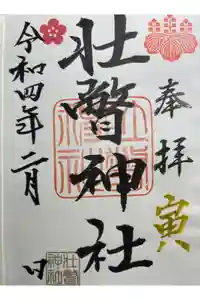 奉拝
寅
壮瞥神社
令和四年二月 日
壮瞥
神社